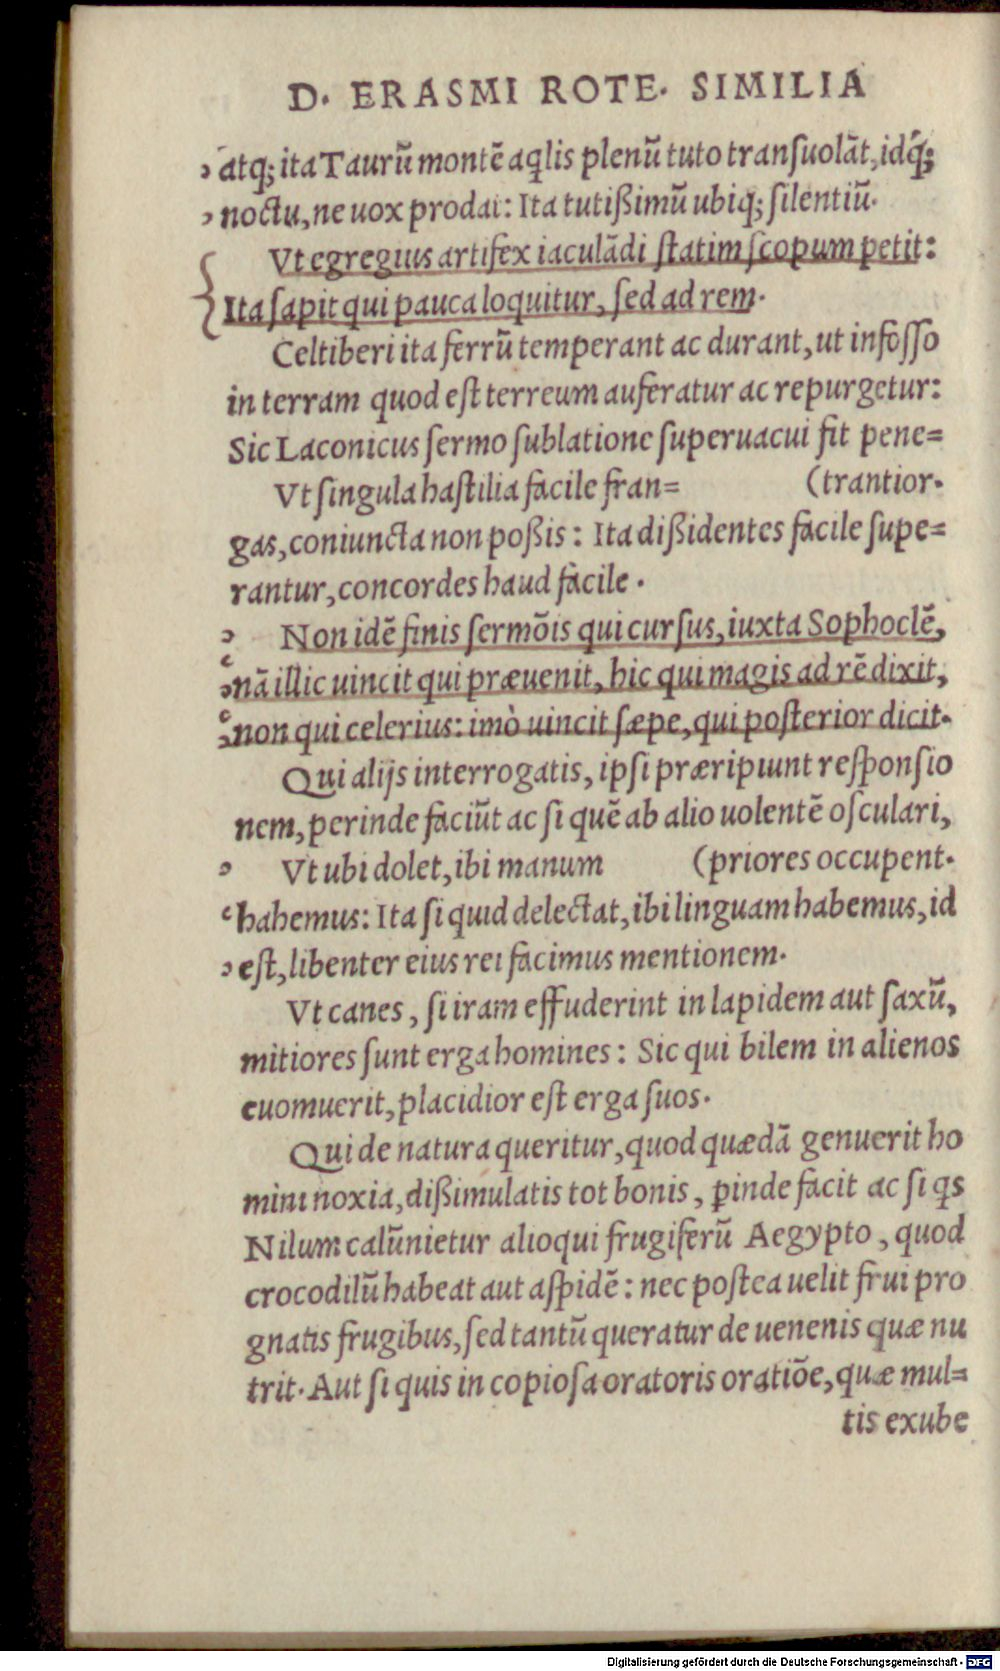 D. ERASMI ROTE. SIMILIA
atq; ita Taurū montē aq̄lis plenū tuto transuolāt, idq́;
noctu, ne uox prodat: Ita tutißimū ubiq; silentiū.
Vt egregius artifex iaculādi statim scopum petit:
Ita sapit qui pauca loquitur, sed ad rem.
Celtiberi ita ferrū temperant ac durant, ut infosso
in terram quod est terreum auferatur ac repurgetur:
Sic Laconicus sermo sublatione superuacui fit pene=
Vt singula hastilia facile fran= (trantior.
gas, coniuncta non poßis: Ita dißidentes facile supe=
rantur, concordes haud facile.
Non idē finis sermōis qui cursus, iuxta Sophoclē,
nā illic uincit qui præuenit, hic qui magis ad rē dixit,
non qui celerius: imò uincit sæpe, qui posterior dicit.
Qui alijs interrogatis, ipsi præripiunt responsio
nem, perinde faciūt ac si quē ab alio uolentē osculari,
Vt ubi dolet, ibi manum (priores occupent.
habemus: Ita si quid delectat, ibi linguam habemus, id
est, libenter eius rei facimus mentionem.
Vt canes, si iram effuderint in lapidem aut saxū,
mitiores sunt erga homines: Sic qui bilem in alienos
euomuerit, placidior est erga suos.
Qui de natura queritur, quod quædā genuerit ho
mini noxia, dißimulatis tot bonis, ꝑinde facit ac si qs
Nilum calūnietur alioqui frugiferū Aegypto, quod
crocodilū habeat aut aspidē: nec postea uelit frui pro
gnatis frugibus, sed tantū queratur de uenenis quæ nu
trit. Aut si quis in copiosa oratoris oratiōe, quæ mul=
tis exube
Digitalisierung gefördert durch die Deutsche Forschungsgemeinschaft - DFG